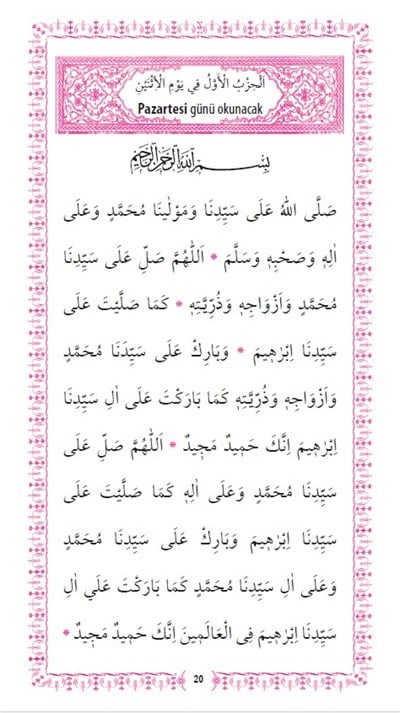 اَلْحِزْبُ الْاَوَّلُ فِي يَوْمِ الْاِثْنَيْنِ
Pazartesi günü okunacak
بِسْمِ اللهِ الرَّحْمٰنِ الرَّحِيمِ
صَلَّى اللهُ عَلَى سَيِّدِنَا وَمَوْلٰينَا مُحَمَّدٍ وَعَلَى
اٰلِهِ وَصَحْبِهِ وَسَلَّمَ * اَللّٰهُمَّ صَلِّ عَلَى سَيِّدِنَا
مُحَمَّدٍ وَاَزْوَاجِهِ وَذُرِّيَّتِهِ * كَمَا صَلَّيْتَ عَلَى
سَيِّدِنَا اِبْرٰهِيمَ * وَبَارِكْ عَلَى سَيِّدَنَا مُحَمَّدٍ
وَاَزْوَاجِهِ وَذُرِّيَّتِهِ كَمَا بَارَكْتَ عَلَى اٰلِ سَيِّدِنَا
اِبْرٰهِيمَ اِنَّكَ حَمِيدٌ مَجِيدٌ * اَللّٰهُمَّ صَلِّ عَلَى
سَيِّدِنَا مُحَمَّدٍ وَعَلَى اٰلِهِ كَمَا صَلَّيْتَ عَلَى
سَيِّدِنَا اِبْرٰهِيمَ وَبَارِكْ عَلَى سَيِّدِنَا مُحَمَّدٍ
وَعَلَى اٰلِ سَيِّدِنَا مُحَمَّدٍ كَمَا بَارَكْتَ عَلَي اٰلِ
سَيِّدِنَا اِبْرٰهِيمَ فِى الْعَالَمِينَ اِنَّكَ حَمِيدٌ مَجِيدٌ *
20